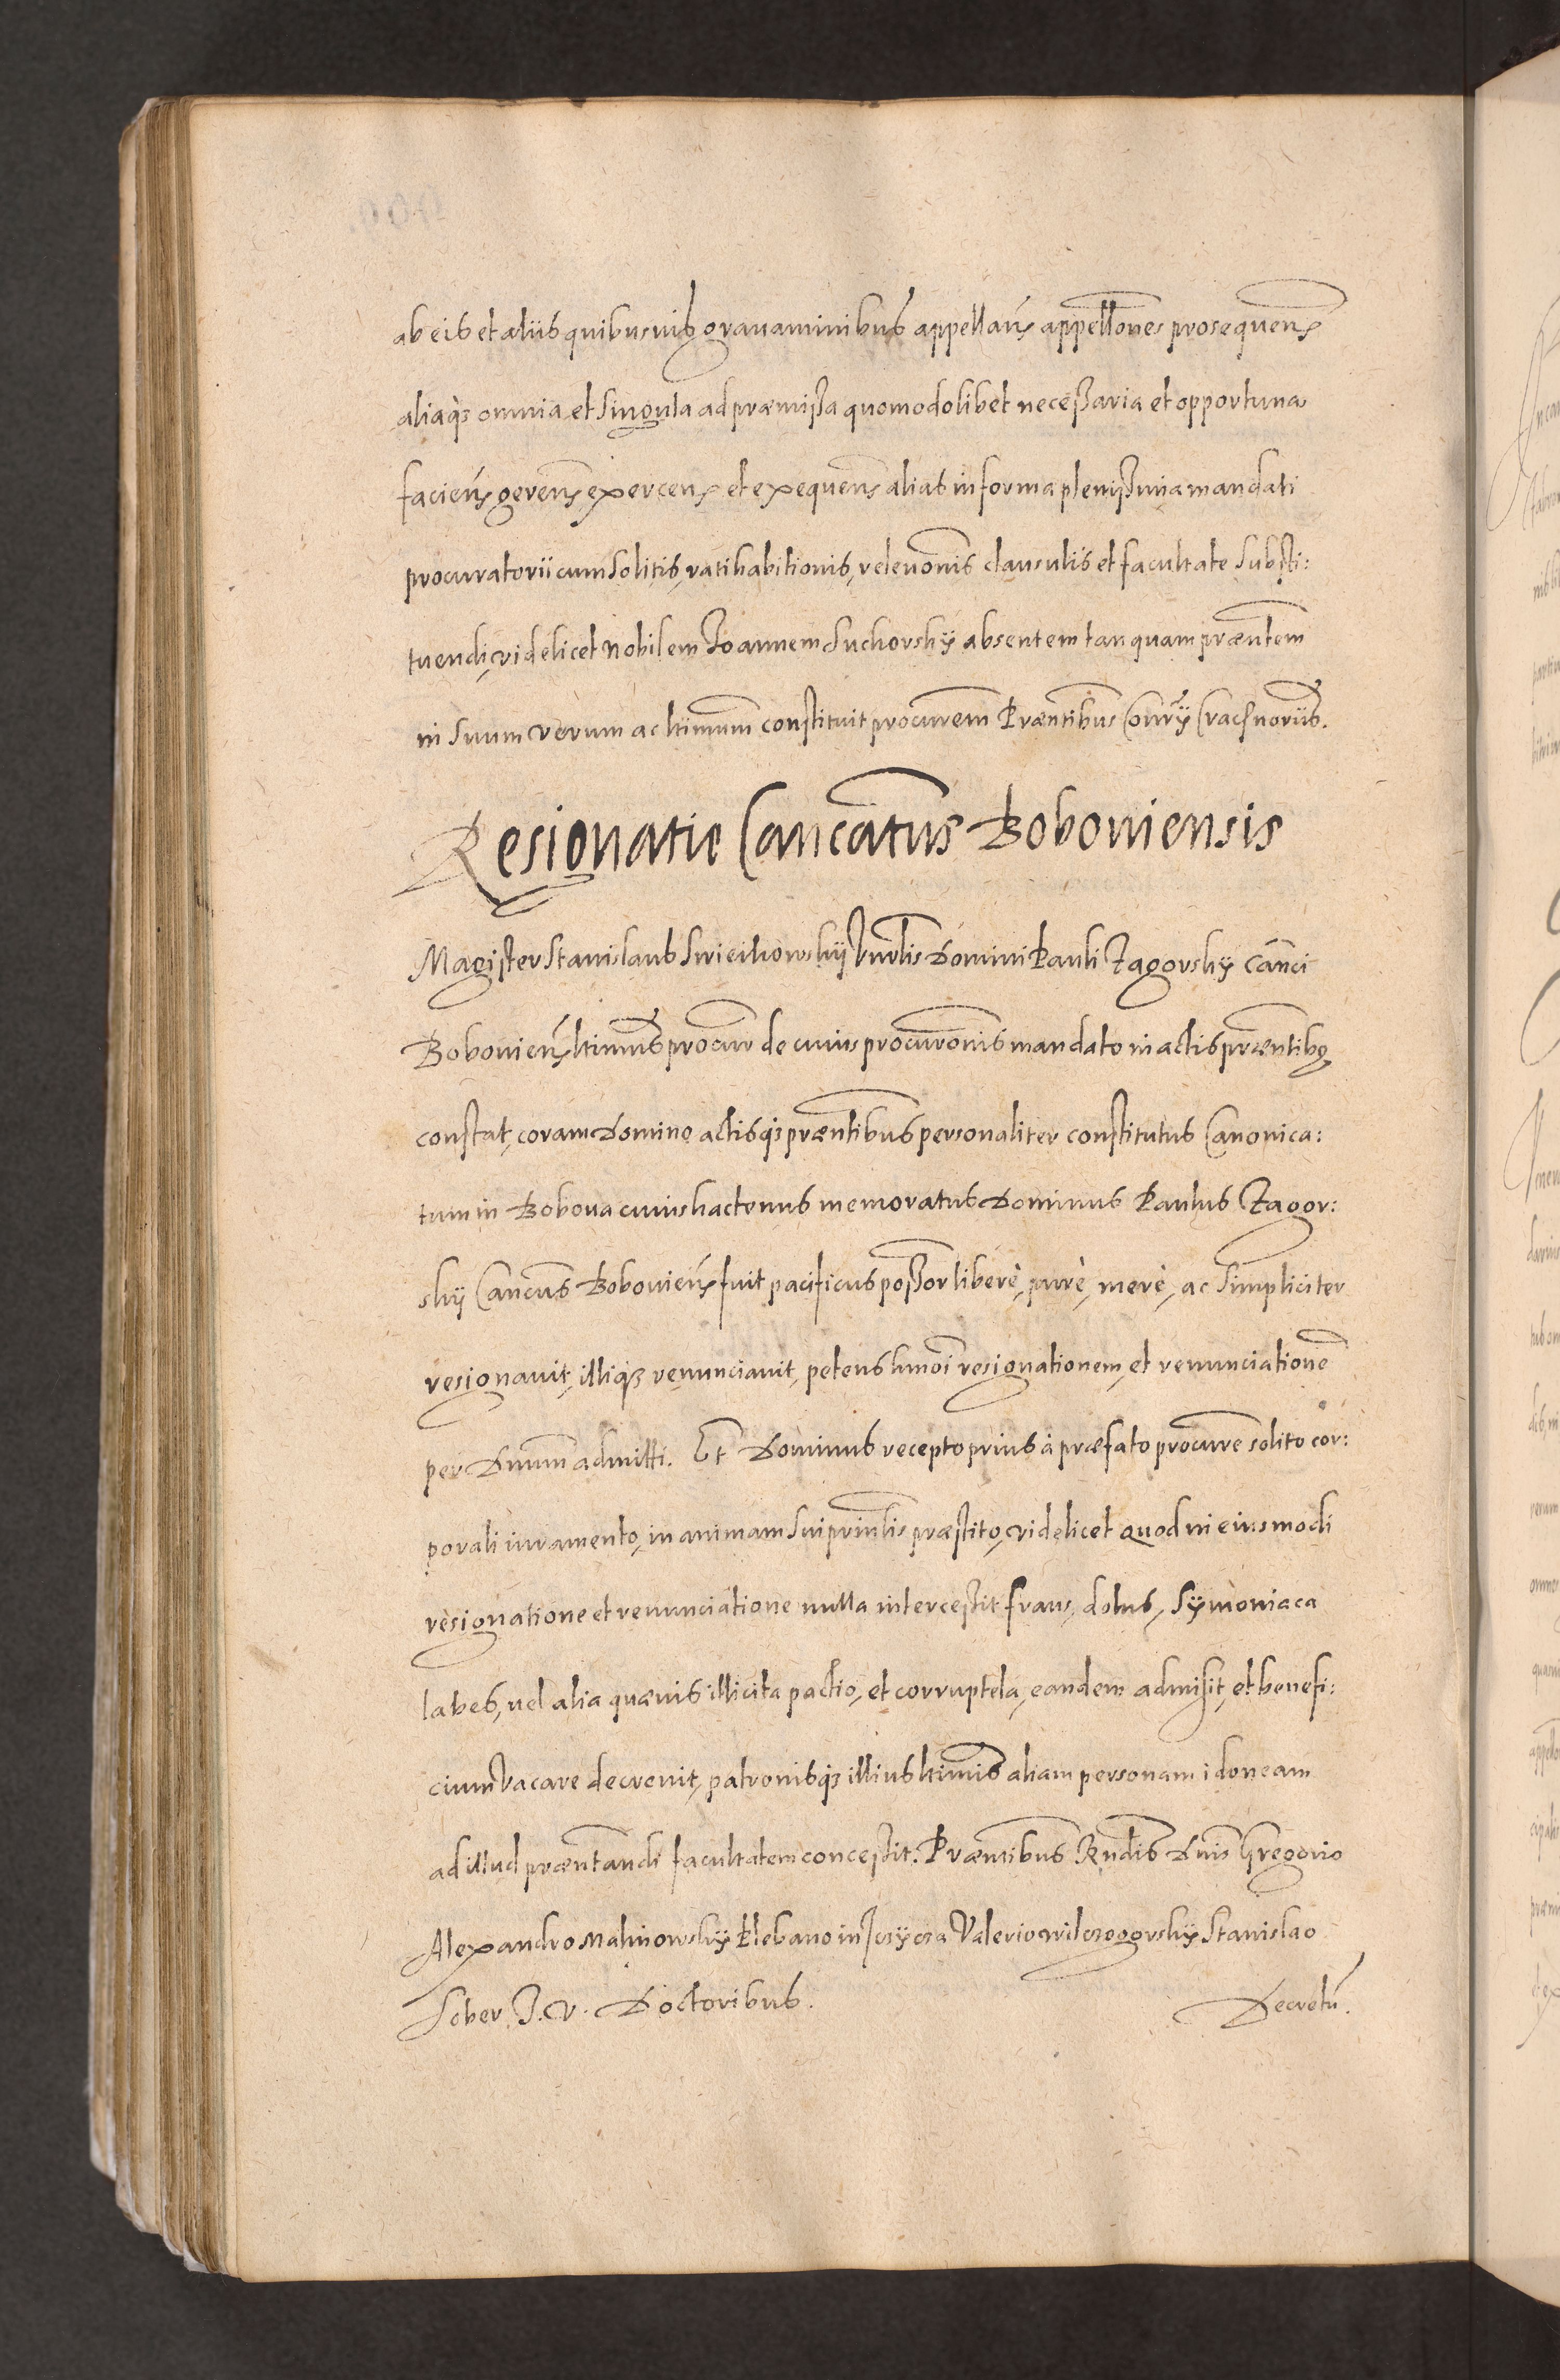 ab eis et aliis quibusuis grauaminibus appellań appelloēs prosequeń
aliaqꝫ omnia et singula ad præmissa quomodolibet necessaria et opportuna
facień gereń exerceń et exequeń alias in forma plenissima mandati
procuratorii cum solitis, ratihabitionis, releuoīs clausulis et facultate substi:
tuendi, videlicet Nobilem Joannem Suchorskÿ absentem tanquam præntem
in suum verum ac ltimum constituit procurem Præntibus
Resignatio Cancatus Boboviensis
Magister Stanislaus Domini Pauli Zagorskÿ Canci
Bobovień ltimus procur de cuius procuronis mandato in actis præntibꝫ
constat, coram Domino actisqꝫ præntibus personaliter constitutus Canonica:
tum in Bobova cuius hactenus memoratus Dominus Paulus Zagor:
skÿ Cancus Bobovień fuit pacificus possor liberè, purè, merè, ac simpliciter
resignauit, illiqꝫ renunciauit, petens hmōi resignationem, et renunciationē
per Dnum admitti. Et Dominus recepto prius à præfato procure solito cor:
porali iuramento, in animam sui prinlis præstito, videlicet quod in eiusmodi
resignatione et renunciatione nulla intercessit fraus, dolus, Sÿmoniaca
labes, vel alia quæuis illicita pactio, et corruptela, eandem admisit, et benefi:
cium vacare decreuit, patronisqꝫ illius ltimis aliam personam idoneam
ad illud præntandi facultatem concessit. Præntibus Rndis Dnis Gregorio
Alexandro Malinowskÿ Plebano in Valerio Stanislao
J. V. Doctoribus. Decretū.